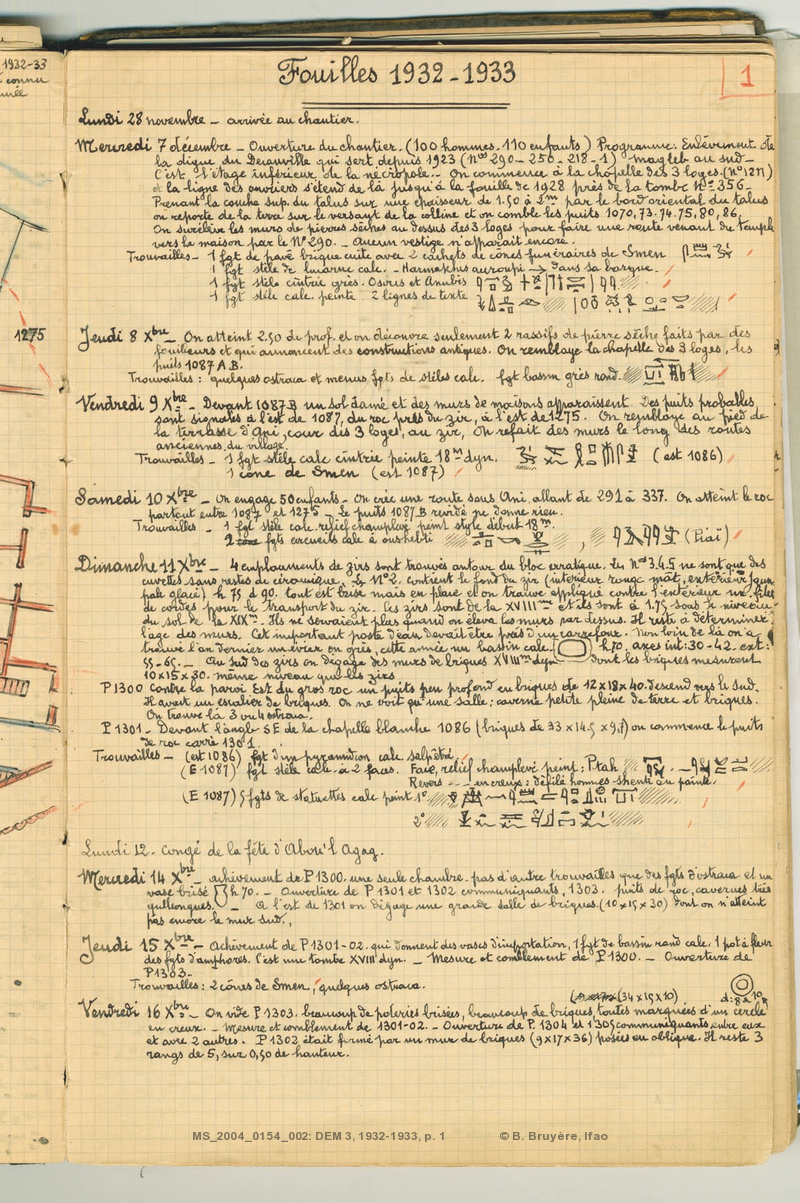 1932-33
connu
1275
Fouilles 1932-1933
1
Lundi 28 novembre – arrivée au chantier.
Mercredi 7 décembre – Ouverture du chantier. (100 hommes. 110 enfants) Programme: Enlèvement de
la digue du Decauville qui sert depuis 1923 (Nos 290 – 250 – 218 – 1) magreb au sud –
C'est l'étage inférieur de la nécropole. – On commence à la chapelle des 3 loges. (N° 1211)
et la ligne des ouvriers s'étend de là jusqu'à la fouille de 1928 près de la tombe N° 356 –
Prenant la couche sup. du talus sur une épaisseur de 1.50 à 2m par le bord oriental du talus
on reporte de la terre sur le versant de la colline et on comble les puits 1070, 73. 74. 75, 80, 86,
On surélève les murs de pierres sèches au dessus des 3 loges pour faire une route venant du temple
vers la maison par le N° 290. – Aucun vestige n'apparait encore.
Trouvailles – 1 fgt de pavé brique cuite avec 2 cachets de cônes funéraires de Smen
1 fgt stèle de lucarne calc. – Harmakhis accroupi → dans sa barque.
1 fgt stèle cintrée grès. Osiris et Anubis
1 fgt stèle calc. peinte 2 lignes de texte
Jeudi 8 Xbre – On atteint 2.50 de prof. et on découvre seulement 2 massifs de pierre sèche faits par des
fouilleurs et qui annoncent des constructions antiques. On remblaye la chapelle des 3 loges, les
puits 1087 A B.
Trouvailles : quelques ostraca et menus fgts de stèles calc. fgt bassin grès rond.
Vendredi 9 Xbre – Devant 1087 B un sol damé et des murs de maisons apparaissent. Des puits probables
sont signalés à l'est de 1087, du roc près du zir, à l'est de 1275. On remblaye au pied de
la terrasse d'Ani, cour des 3 loges, au zir, On refait des murs le long des routes
anciennes du village.
Trouvailles – 1 fgt stèle calc cintrée peinte 18m dyn. (est 1086)
1 cône de Smen (est 1087)
Samedi 10 Xbre – On engage 50 enfants – On crée une route sous Ani, allant de 291 à 337. On atteint le roc
partout entre 1087 et 1275 – Le puits 1087 B revidé ne donne rien.
Trouvailles – 1 fgt stèle calc. relief champlevé peint style début 18m.
2 fgts cercueils calc à oushebti , (Piaï)
Dimanche 11 Xbre – 4 emplacements de zirs sont trouvés autour du bloc erratique. Les Nos 3.4.5 ne sont que des
cuvettes sans restes de céramique. Le N° 2. contient le fond du zir (intérieur rouge mat, extérieur jaune
pâle glacé) h 75 d 90. tout est brisé mais en place et on trouve appliqué contre l'extérieur un filet
de cordes pour le transport du zir. Les zirs sont de la XVIIIme et ils sont à 1.75 sous le niveau
du sol de la XIXe. Ils ne servaient plus quand on éleva les murs par dessus. Il reste à déterminer
l'âge des murs. Cet important poste d'eau devait être près d'un carrefour. Non loin de là on a
trouvé l'an dernier un évier en grès, cette année un bassin calc. h 70. axes int: 30 – 42. ext:
55 – 65. – Au sud des zirs on dégage des murs de briques XVIIIme dyn dont les briques mesurent
10 x 15 x 30. même niveau que les zirs
P 1300 Contre la paroi Est du gros roc un puits peu profond en briques de 12 x 18 x 40. descend vers le sud.
Il avait un escalier de briques. On ne voit qu'une salle; caverne petite pleine de terre et briques.
On trouve là 3 ou 4 ostraca.
P 1301 – Devant l'angle SE de la chapelle blanche 1086 (briques de 33 x 14.5 x 9,5) on commence le puits
de roc carré 1301
Trouvailles – (est 1086) fgt d'un pyramidion calc salpêtré
(E 1087) fgt stèle calc. à 2 faces. Face, relief champlevé peint: Ptah
Revers – en creux: défilé hommes – shenti ou pointe.
(E 1087) 5 fgts de statuettes calc peint 1°
2°
Lundi 12. Congé de la fête d'Abou'l Agag.
Mercredi 14 Xbre – achèvement de P 1300. une seule chambre. pas d'autre trouvailles que des fgts d'ostraca et un
vase brisé h 70. – Ouverture de P 1301 et 1302 communiquants, 1303. puits de roc, cavernes très
quelconques. – A l'est de 1301 on dégage une grande salle de briques. (10 x 15 x 30) dont on n'atteint
pas encore le mur sud.
Jeudi 15 Xbre – Achèvement de P 1301-02. qui donnent des vases d'importation, 1 fgt de bassin rond calc. 1 pot à fleur
des fgts d'amphores. C'est une tombe XVIII dyn. – Mesure et comblement de P 1300. – Ouverture de
P 1303.
Trouvailles : 2 cônes de Smen, quelques ostraca.
(34 x 15 x 10) d: 8 à 10
Vendredi 16 Xbre – On vide P 1303. beaucoup de poteries brisées, beaucoup de briques, toutes marquées d'un cercle
en creux. – Mesure et comblement de 1301-02. – Ouverture de P. 1304 et 1305 communiquants entre eux
et avec 2 autres. P 1302 était fermé par un mur de briques (9 x 17 x 36) posées en oblique. Il reste 3
rangs de 5, sur 0,50 de hauteur.
MS_2004_0154_002: DEM 3, 1932-1933, p. 1 © B. Bruyère, Ifao